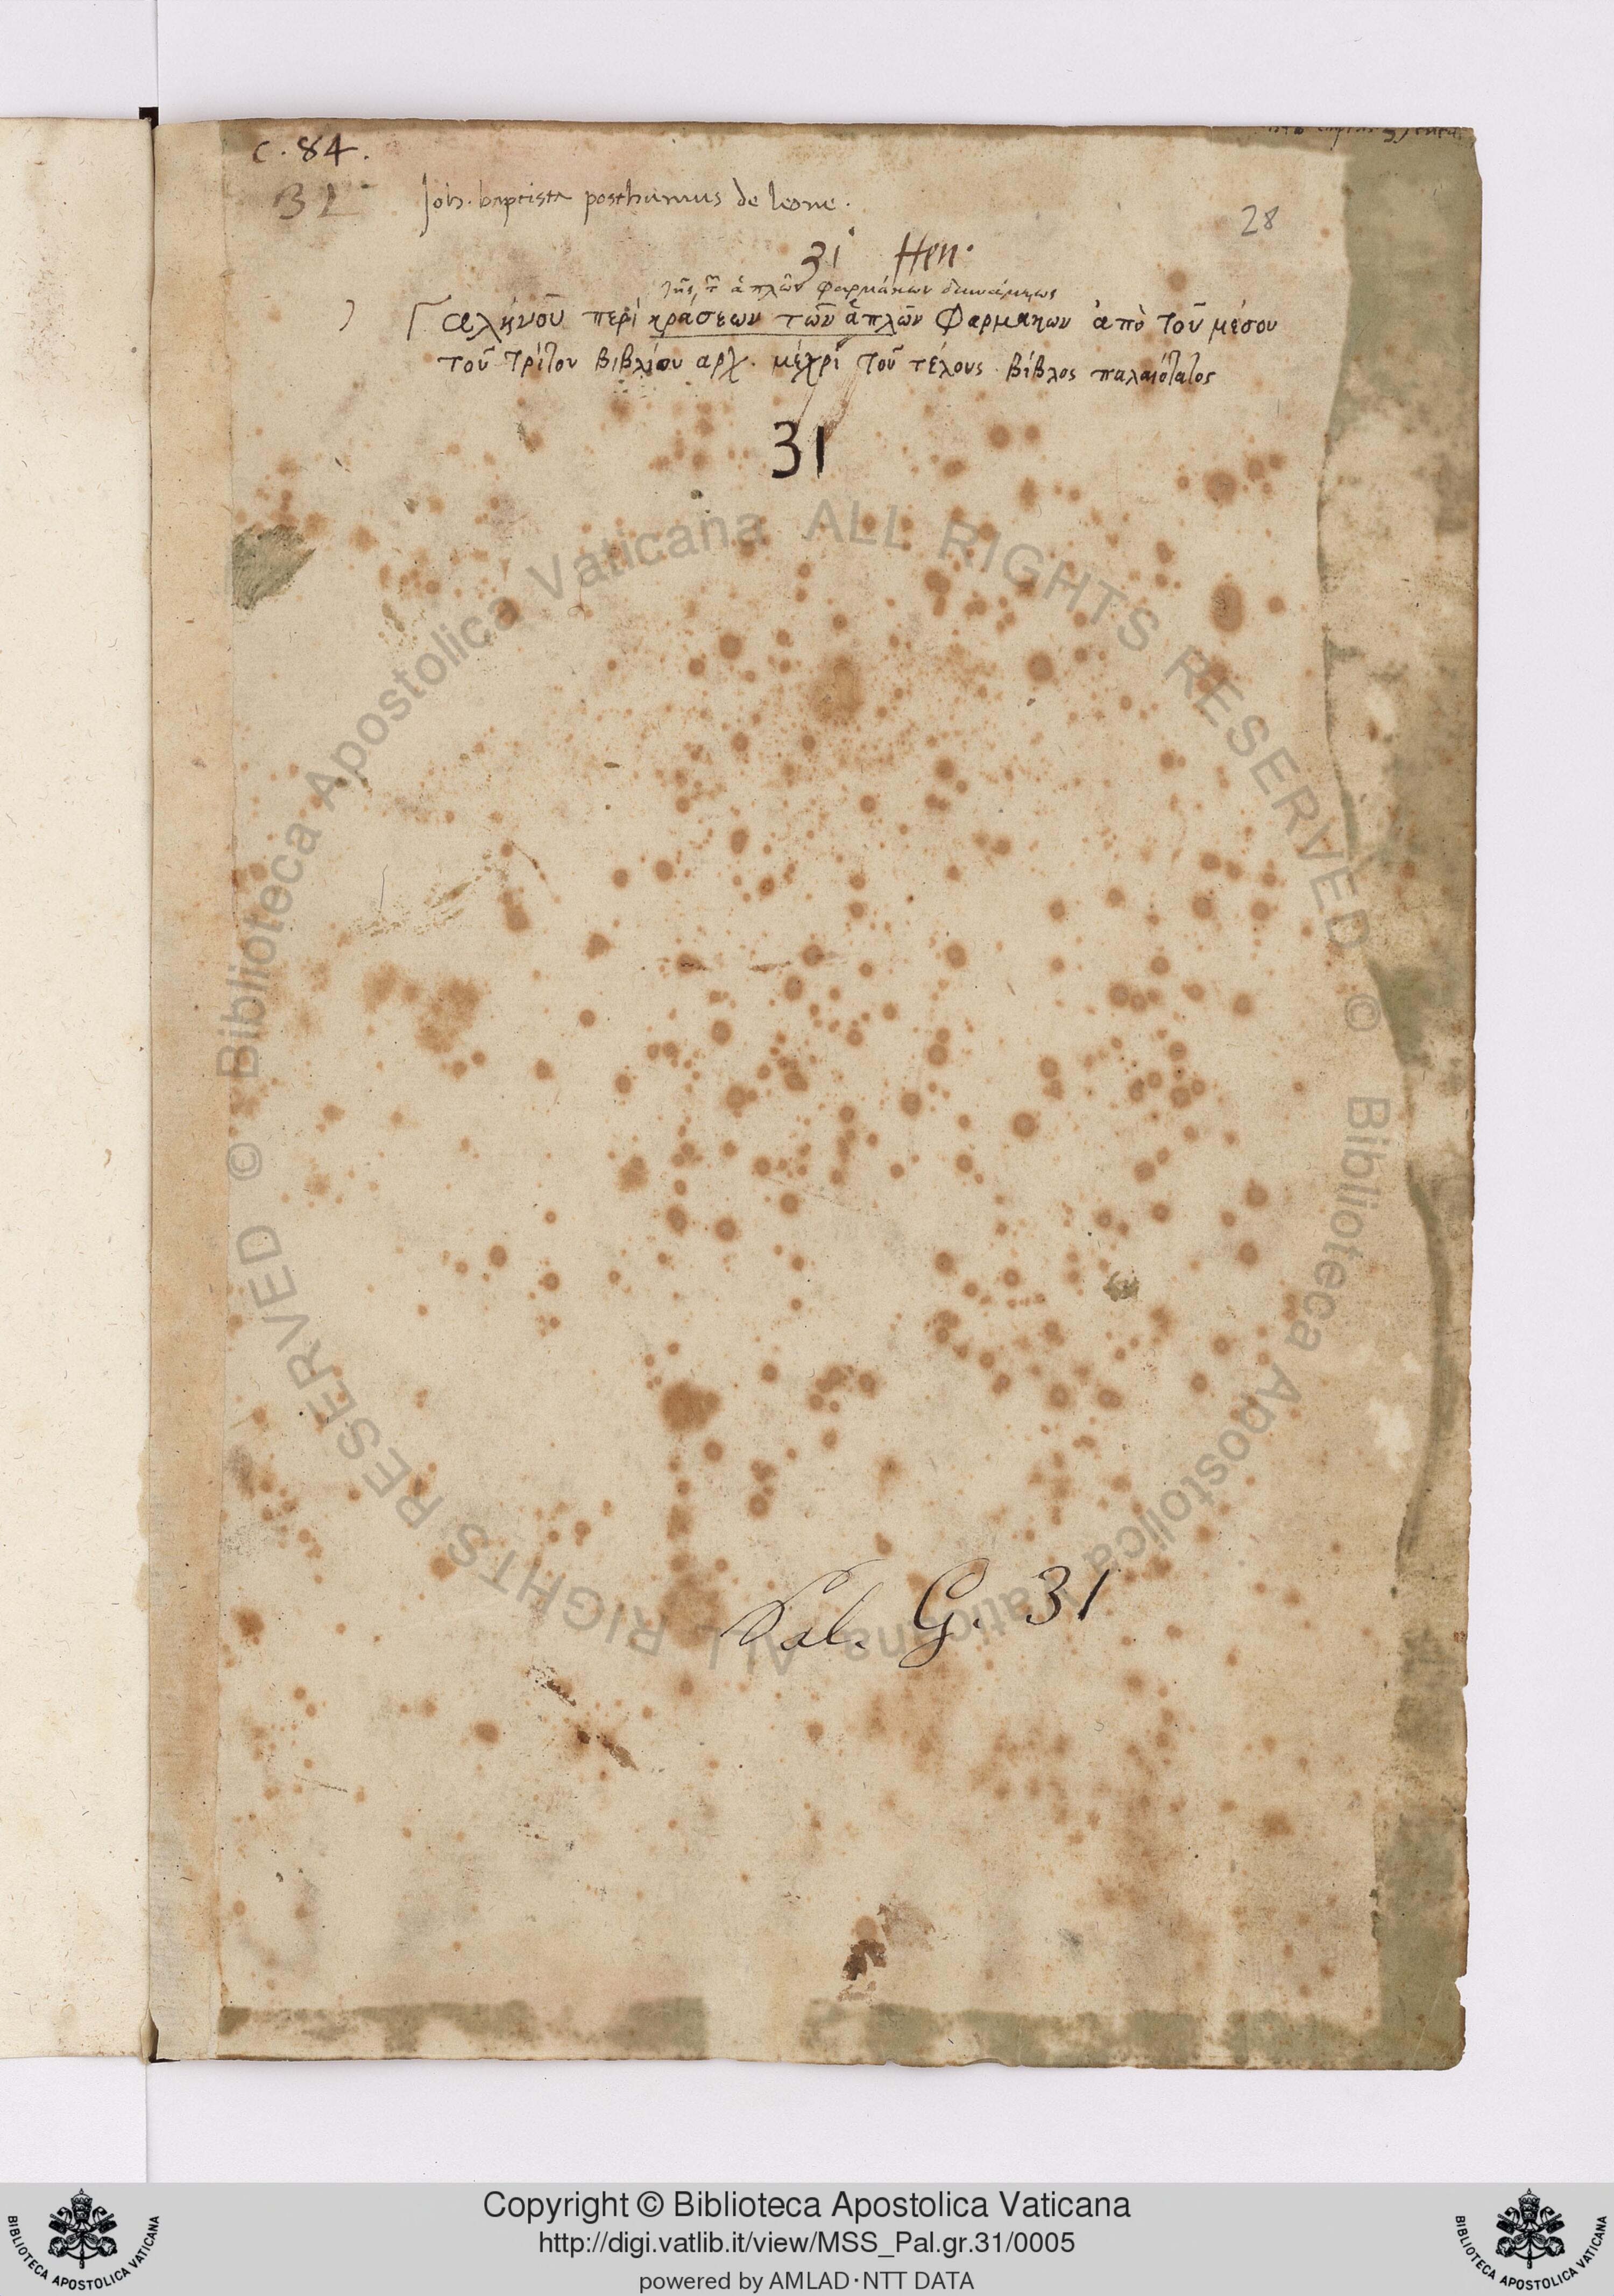 c. 84.
32
Joh. baptista posthumus de leone.
28
31 Hen.
τῆς τῶν ἁπλῶν φαρμάκων δυνάμεως
Γαληνοῦ περὶ κράσεων τῶν ἁπλῶν Φαρμακων ἀπὸ τοῦ μέσου
τοῦ τρίτου βιβλίου αρχ. μέχρι τοῦ τέλους. βίβλος παλαιότατος
31
Pal. G. 31
© Biblioteca Apostolica Vaticana ALL RIGHTS RESERVED © Biblioteca Apostolica Vaticana ALL RIGHTS RESERVED
Copyright © Biblioteca Apostolica Vaticana
http://digi.vatlib.it/view/MSS_Pal.gr.31/0005
powered by AMLAD·NTT DATA
BIBLIOTECA APOSTOLICA VATICANA
BIBLIOTECA APOSTOLICA VATICANA